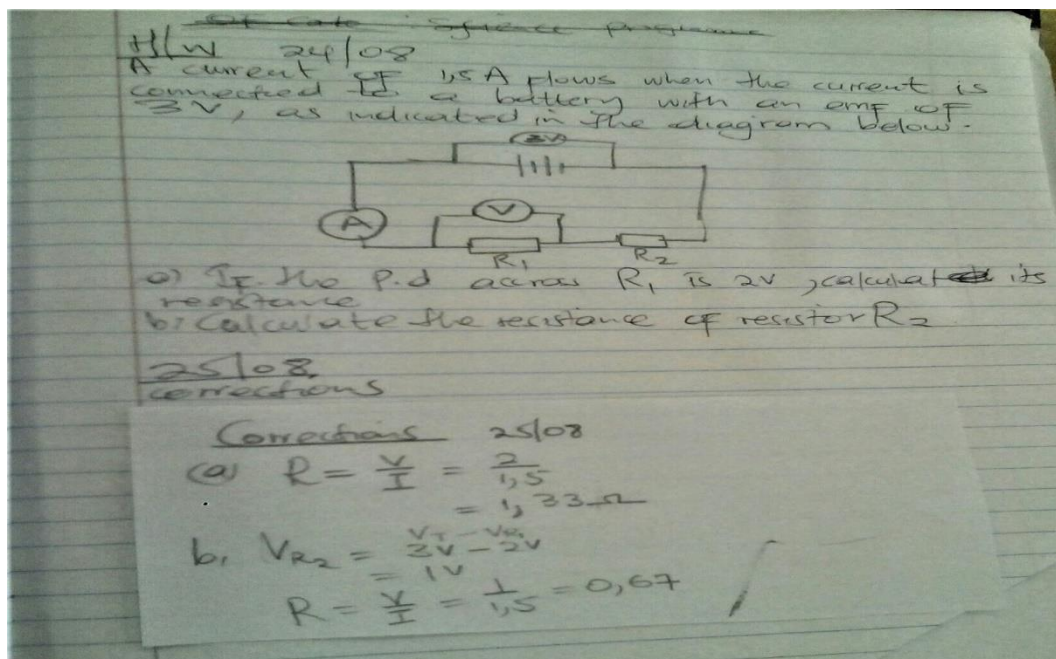 H/W 24/08
A current of 1,5 A flows when the current is
connected to a battery with an emf of
3V, as indicated in the diagram below.
3V
A
V
R1
R2
a) If the P.d accross R1 is 2V, calculate its
resistance
b) Calculate the resistance of resistor R2
25/08
corrections
Corrections 25/08
(a) R = V/I = 2/1,5
= 1,33 Ω
VT - VR1
b. VR2 = 3V - 2V
= 1V
R = V/I = 1/1,5 = 0,67